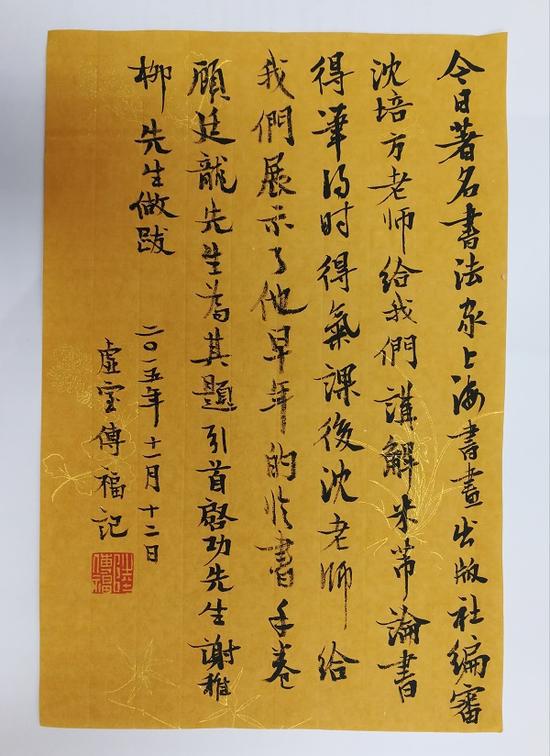 今日著名書法家上海書畫出版社編審
沈培方老师给我們講解米芾論書
得筆得时得氣課後沈老师给
我們展示了他早年的临書手卷
顾廷龍先生為其題引首啓功先生謝稚
柳先生做跋
二〇一五年十一月十二日
虚室傅福記
陸傅福